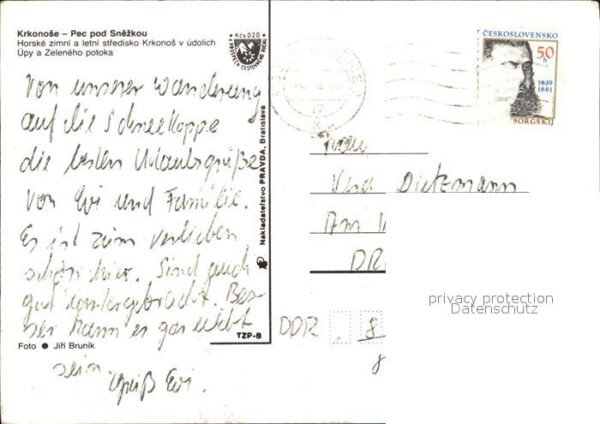 Krkonoše – Pec pod Sněžkou
Horské zimní a letní středisko Krkonoš v údolích
Úpy a Zeleného potoka
Kčs 020
Von unserer Wanderung
auf die Schneekoppe
die besten Urlaubsgrüße
von Evi und Familie.
Es ist zum verlieben
schön hier. Sind auch
gut untergebracht. Bes-
ser kann es gar nicht
sein.
Gruß Evi.
Foto ● Jiří Bruník
TZP-8
Nakladateľstvo PRAVDA, Bratislava
ČESKOSLOVENSKO
50 h
1839
1881
SORGSKIJ
17
Dietzmann
Am
DR
DDR 8
8
privacy protection
Datenschutz